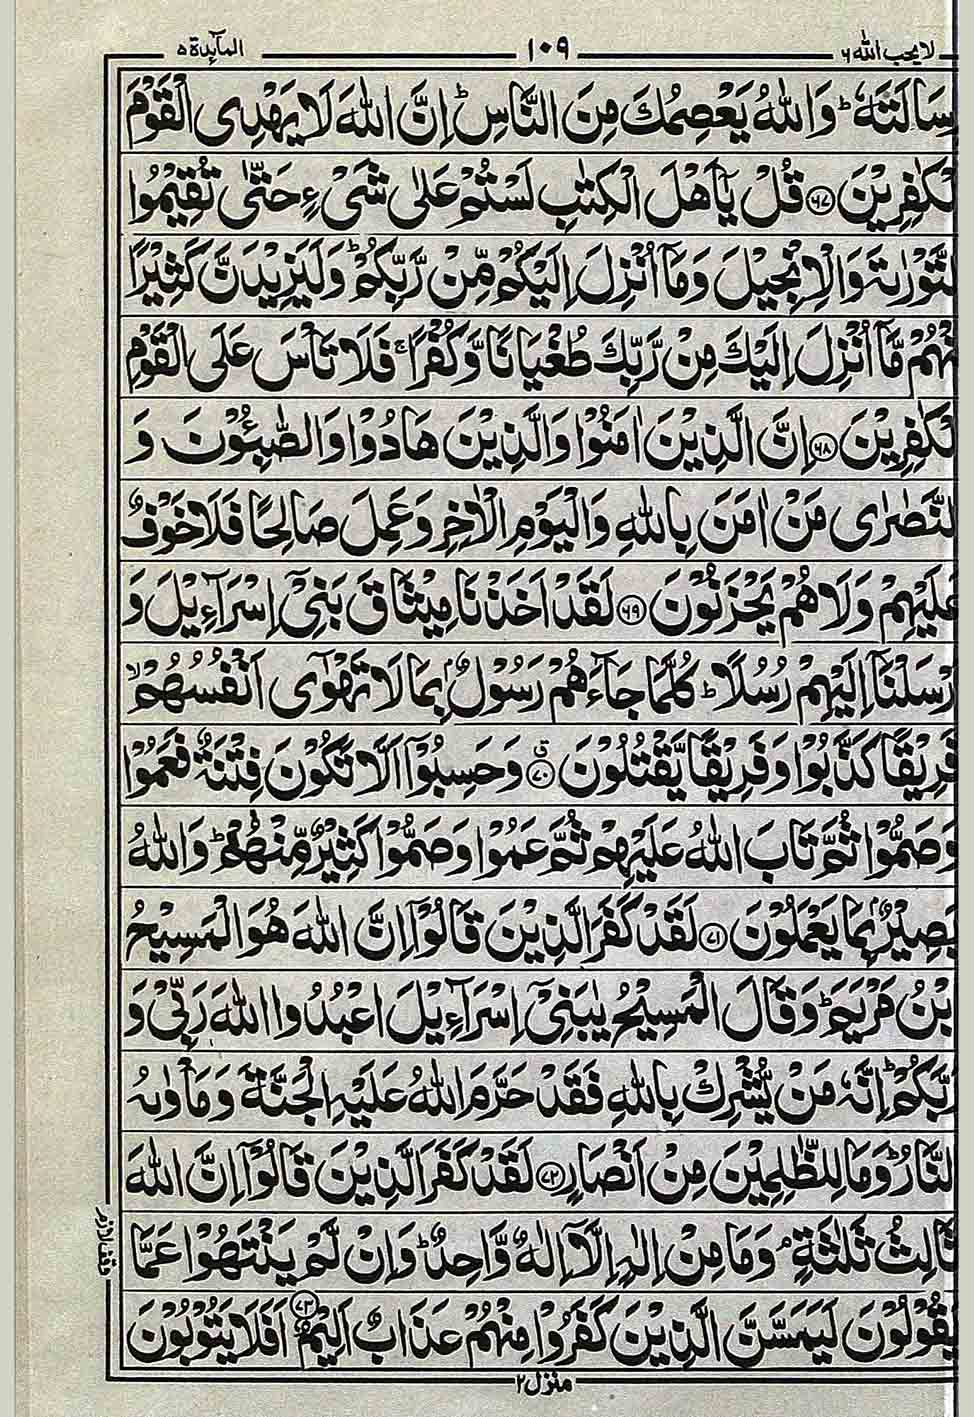 لا یحب الله ٦ ١٠٩ المآئدة ٥
رِسَالَتَهٗ ؕ وَاللّٰهُ یَعْصِمُكَ مِنَ النَّاسِ ؕ اِنَّ اللّٰهَ لَا یَهْدِی الْقَوْمَ
الْكٰفِرِیْنَ ۝۶۷ قُلْ یٰۤاَهْلَ الْكِتٰبِ لَسْتُمْ عَلٰی شَیْءٍ حَتّٰی تُقِیْمُوا
التَّوْرٰىةَ وَالْاِنْجِیْلَ وَمَاۤ اُنْزِلَ اِلَیْكُمْ مِّنْ رَّبِّكُمْ ؕ وَلَیَزِیْدَنَّ كَثِیْرًا
مِّنْهُمْ مَّاۤ اُنْزِلَ اِلَیْكَ مِنْ رَّبِّكَ طُغْیَانًا وَّكُفْرًا ۚ فَلَا تَاْسَ عَلَی الْقَوْمِ
الْكٰفِرِیْنَ ۝۶۸ اِنَّ الَّذِیْنَ اٰمَنُوْا وَالَّذِیْنَ هَادُوْا وَالصّٰبِـُٔوْنَ وَ
النَّصٰرٰی مَنْ اٰمَنَ بِاللّٰهِ وَالْیَوْمِ الْاٰخِرِ وَعَمِلَ صَالِحًا فَلَا خَوْفٌ
عَلَیْهِمْ وَلَا هُمْ یَحْزَنُوْنَ ۝۶۹ لَقَدْ اَخَذْنَا مِیْثَاقَ بَنِیْۤ اِسْرَآءِیْلَ وَ
اَرْسَلْنَاۤ اِلَیْهِمْ رُسُلًا ؕ كُلَّمَا جَآءَهُمْ رَسُوْلٌۢ بِمَا لَا تَهْوٰۤی اَنْفُسُهُمْ ۙ
فَرِیْقًا كَذَّبُوْا وَفَرِیْقًا یَّقْتُلُوْنَ ۝۷۰ ۗ وَحَسِبُوْۤا اَلَّا تَكُوْنَ فِتْنَةٌ فَعَمُوْا
وَصَمُّوْا ثُمَّ تَابَ اللّٰهُ عَلَیْهِمْ ثُمَّ عَمُوْا وَصَمُّوْا كَثِیْرٌ مِّنْهُمْ ؕ وَاللّٰهُ
بَصِیْرٌۢ بِمَا یَعْمَلُوْنَ ۝۷۱ لَقَدْ كَفَرَ الَّذِیْنَ قَالُوْۤا اِنَّ اللّٰهَ هُوَ الْمَسِیْحُ
ابْنُ مَرْیَمَ ؕ وَقَالَ الْمَسِیْحُ یٰبَنِیْۤ اِسْرَآءِیْلَ اعْبُدُوا اللّٰهَ رَبِّیْ وَ
رَبَّكُمْ ؕ اِنَّهٗ مَنْ یُّشْرِكْ بِاللّٰهِ فَقَدْ حَرَّمَ اللّٰهُ عَلَیْهِ الْجَنَّةَ وَمَاْوٰىهُ
النَّارُ ؕ وَمَا لِلظّٰلِمِیْنَ مِنْ اَنْصَارٍ ۝۷۲ لَقَدْ كَفَرَ الَّذِیْنَ قَالُوْۤا اِنَّ اللّٰهَ
ثَالِثُ ثَلٰثَةٍ ۘ وَمَا مِنْ اِلٰهٍ اِلَّاۤ اِلٰهٌ وَّاحِدٌ ؕ وَاِنْ لَّمْ یَنْتَهُوْا عَمَّا
یَقُوْلُوْنَ لَیَمَسَّنَّ الَّذِیْنَ كَفَرُوْا مِنْهُمْ عَذَابٌ اَلِیْمٌ ۝۷۳ اَفَلَا یَتُوْبُوْنَ
منزل ٢